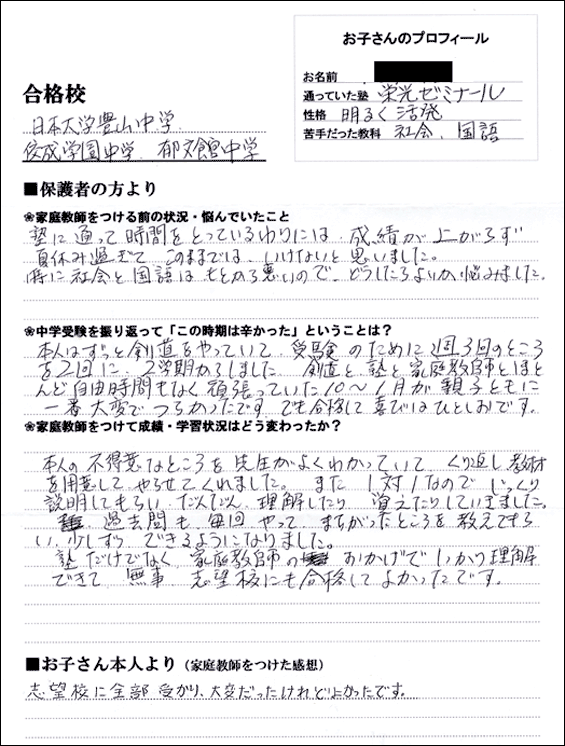 お子さんのプロフィール
お名前
通っていた塾 栄光ゼミナール
性格 明るく活発
苦手だった教科 社会、国語
合格校
日本大学豊山中学
佼成学園中学、郁文館中学
■保護者の方より
❀家庭教師をつける前の状況・悩んでいたこと
塾に通って時間をとっているわりには、成績が上がらず
夏休み過ぎて このままでは、いけないと思いました。
特に社会と国語はもとから悪いので、どうしたらよいか悩みました。
❀中学受験を振り返って「この時期は辛かった」ということは？
本人はずっと剣道をやっていて、受験のために週3回のところ
を2回に、2学期からしました 剣道と塾と家庭教師とほと
んど自由時間もなく頑張っていた10〜1月が親子ともに
一番大変でつらかったです でも合格して喜びはひとしおです。
❀家庭教師をつけて成績・学習状況はどう変わったか？
本人の不得意なところを先生がよくわかっていて、くり返し教材
を用意して、やらせてくれました。また 1対1なのでじっくり
説明してもらい、だんだん理解したり、覚えたりしていきました。
過去問も毎回やって、まちがったところを教えてもら
い、少しずつできるようになりました。
塾だけでなく 家庭教師の おかげでしっかり理解
できて、無事 志望校にも合格してよかったです。
■お子さん本人より（家庭教師をつけた感想）
志望校に全部受かり、大変だったけれどよかったです。